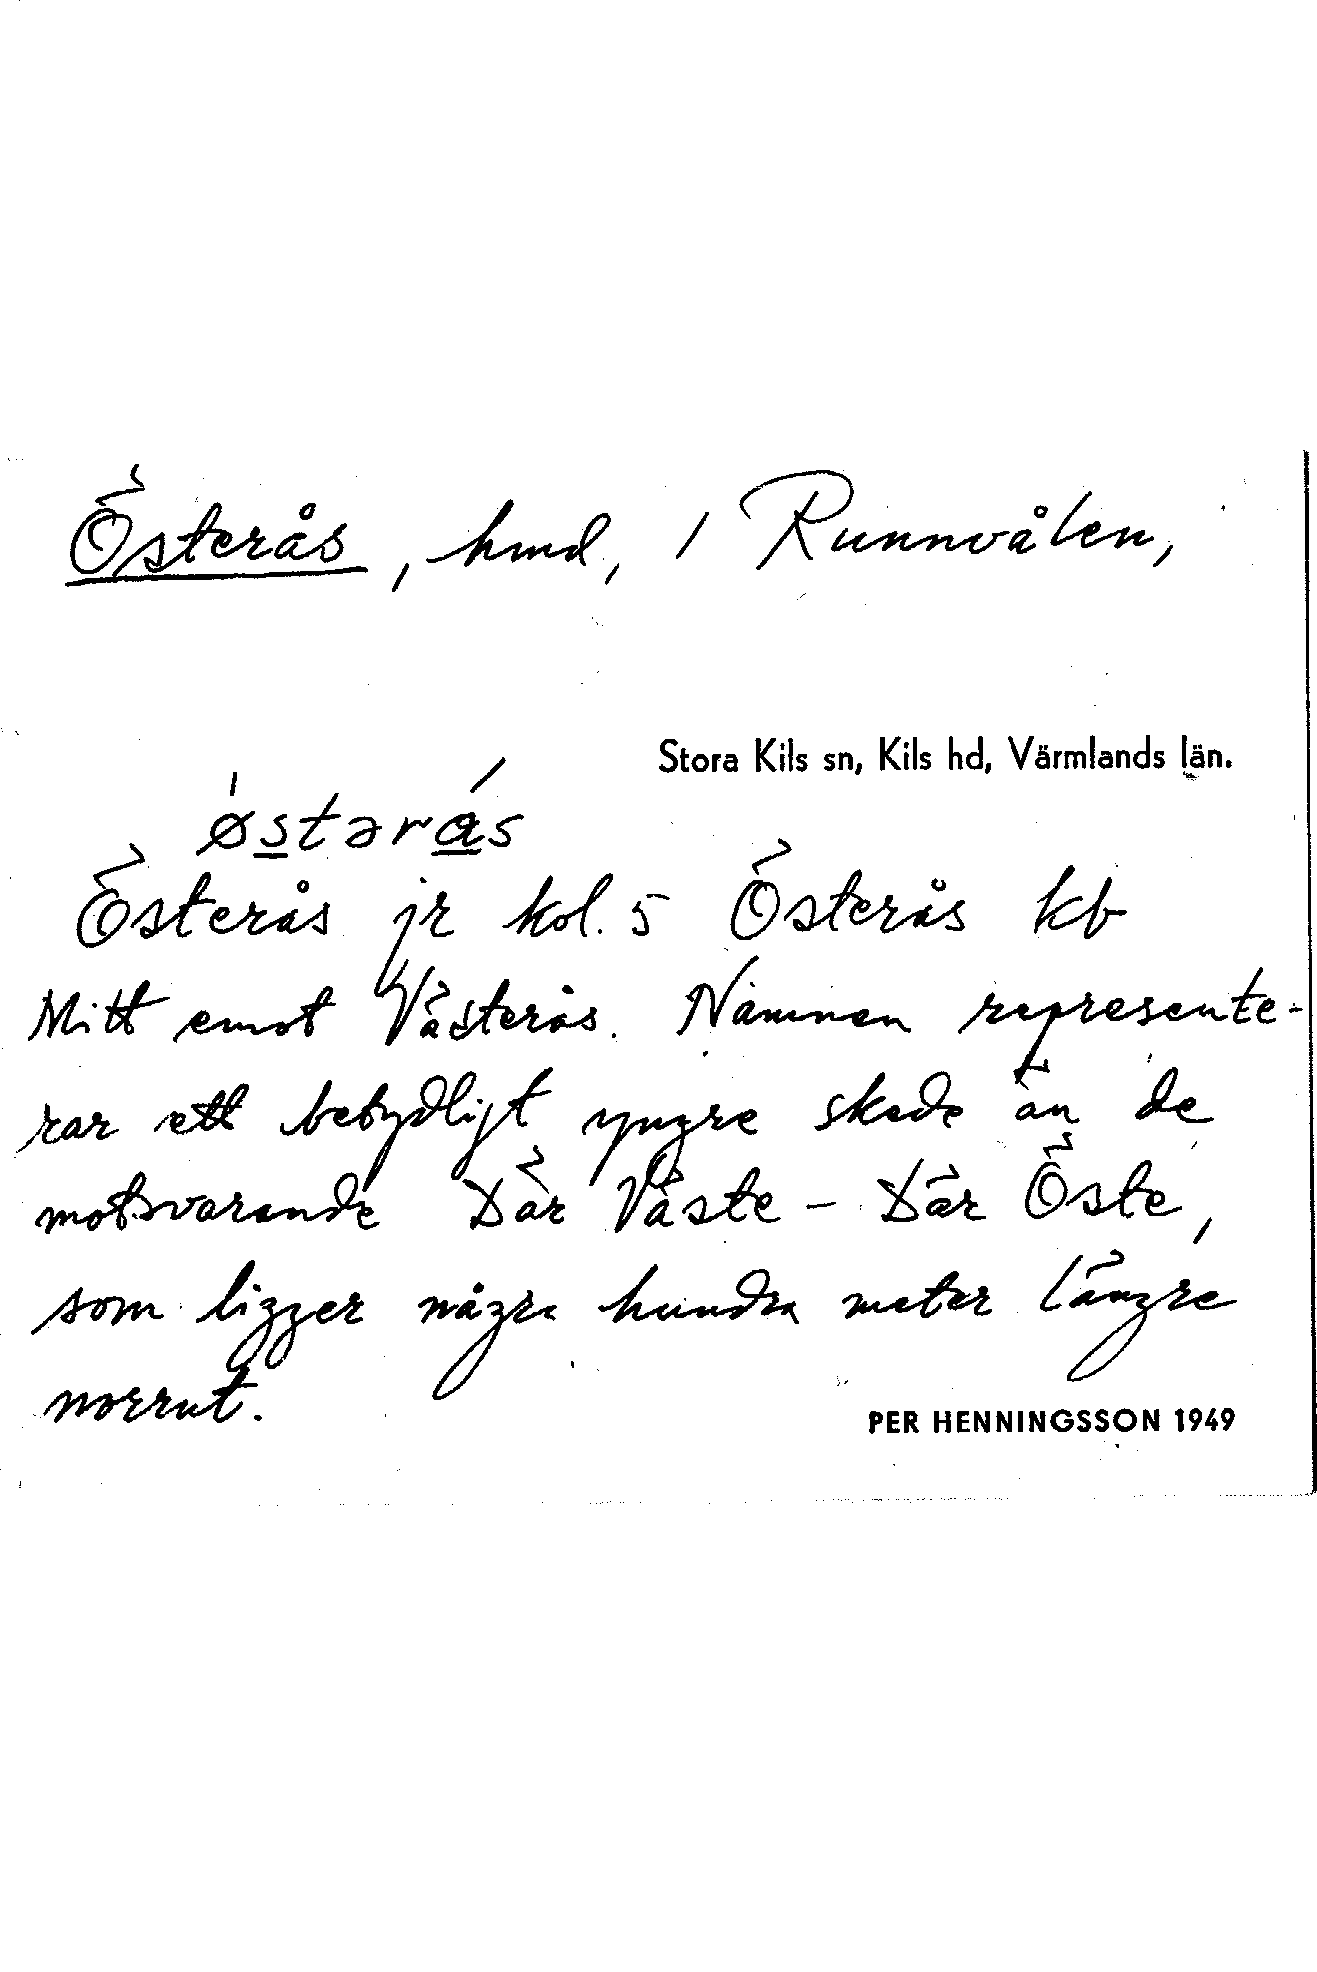 Österås, hmd, 1 Runnvålen,
Stora Kils sn, Kils hd, Värmlands län.
østərás
Österås jr kol. 5 Österås kb
Mitt emot Västerås. Namnen represente-
rar ett betydligt yngre skede än de
motsvarande Där Väste - Där Öste,
som ligger några hundra meter längre
norrut.
PER HENNINGSSON 1949